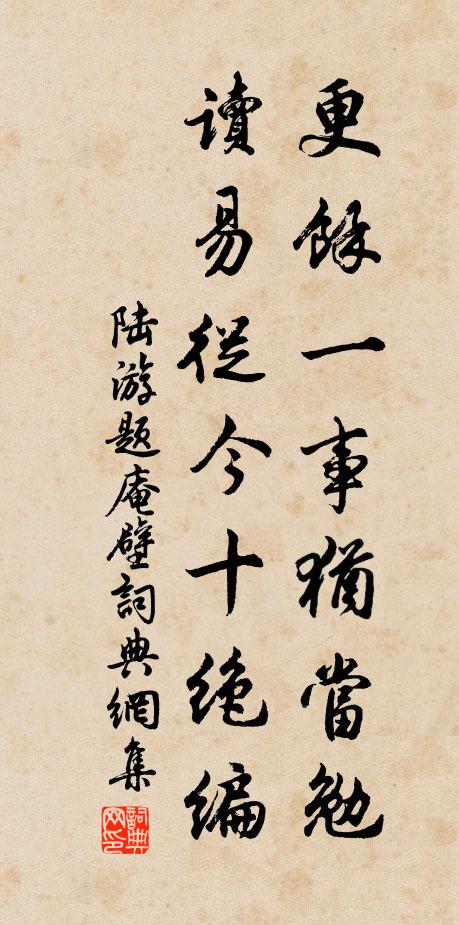 更餘一事猶當勉
讀易從今十絶編
陆游題庵壁詞典網集
詞典网印